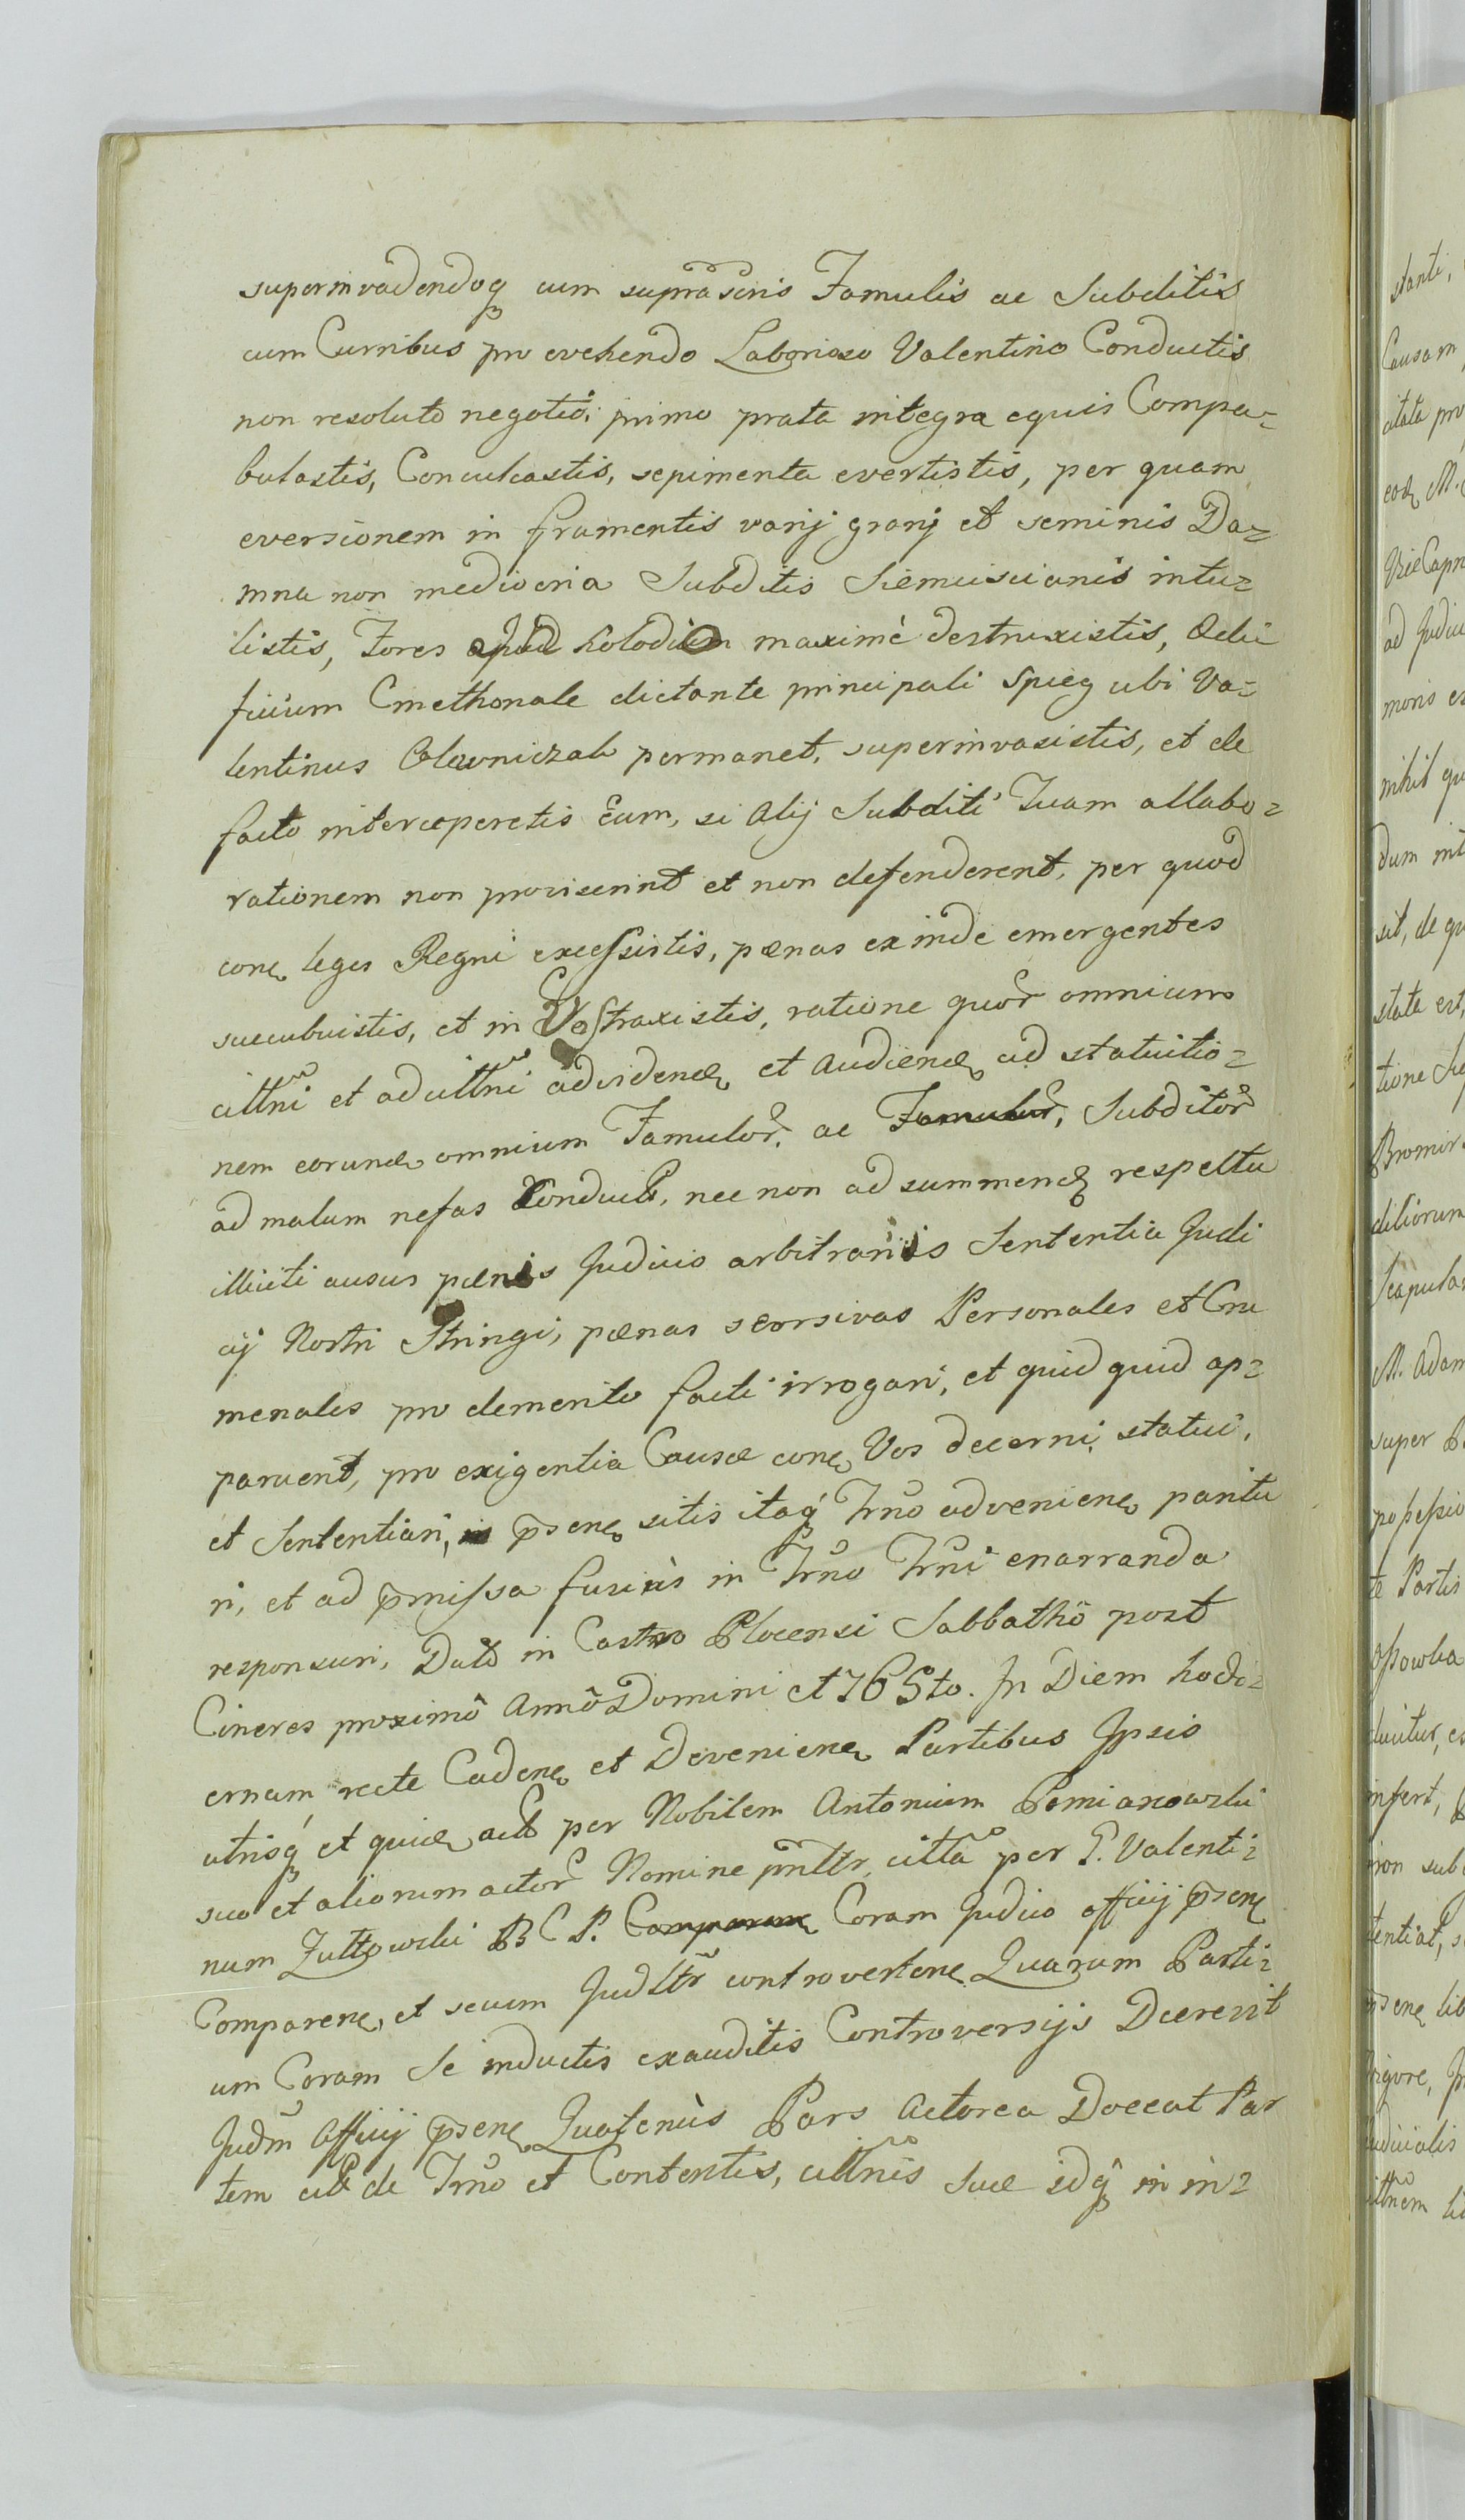 superinvadendoq cum suprascris Famulis ac Subditis
cum Curribus pro evehendo Laborioso Valentino Conductis
non resoluto negotio, primo prata integra equis Compa-
bulastis, Conculcastis, sepimenta evertistis, per quam
eversionem in frumentis varij granj et seminis Da-
mna non mediocria Subditis Siemiscianis intu-
listis, Fores apud Kolodium maxime destruxistis, Aedi
ficium Cmethonale dictante principali Spieg ubi Va-
lentinus permanet, superinvasistis, et de
facto interciperetis Eum, si Alij Subditi Tuam allabo-
rationem non proviserint et non defenderent, per quod
conq leges Regni excessistis, paenas exinde emergentes
succubuistis, et in Vos traxistis, ratione quor omnium
cittni et adcittni advidenđ et Audienđ ad statuitio-
nem eorunđ omnium Famulor, ac Famulor, Subditor
ad malum nefas Conduct, nec non ad summenđ respectu
illiciti ausus paenis Judicio arbitrariis Sententia Judi
cij Nostri Stringi, paenas seorsivas Personales et Cru
menales pro demerito facti irrogari, et quid quid ap-
paruerit, pro exigentia Causae conq Vos decerni, statui,
et Sententiari, psenq sitis itaq Trno advenienq paritu
ri, et ad pmissa fusius in Trno Trni enarranda
responsuri, Datt in Castro Plocensi Sabbatho post
Cineres proximo Anno Domini et 765to. In Diem hodi-
ernam recte Cadenq et Devenienq Partibus Ipsis
utrisq et quidq act per Nobilem Antonium Pomianowski
suo et aliorum actor Nomine pnttr, citta per G. Valenti-
num Zuttowski B C P. Comparenq Coram Judicio officij psenq
Comparenq, et secum Judttr controvertenq Quarum Parti-
um Coram Se inductis exauditis Controversijs Decrevit
Judm Officij psenq Quatenus Pars Actorea Doceat Par
tem citt de Trno et Contentis, cittnis suae idq in in-